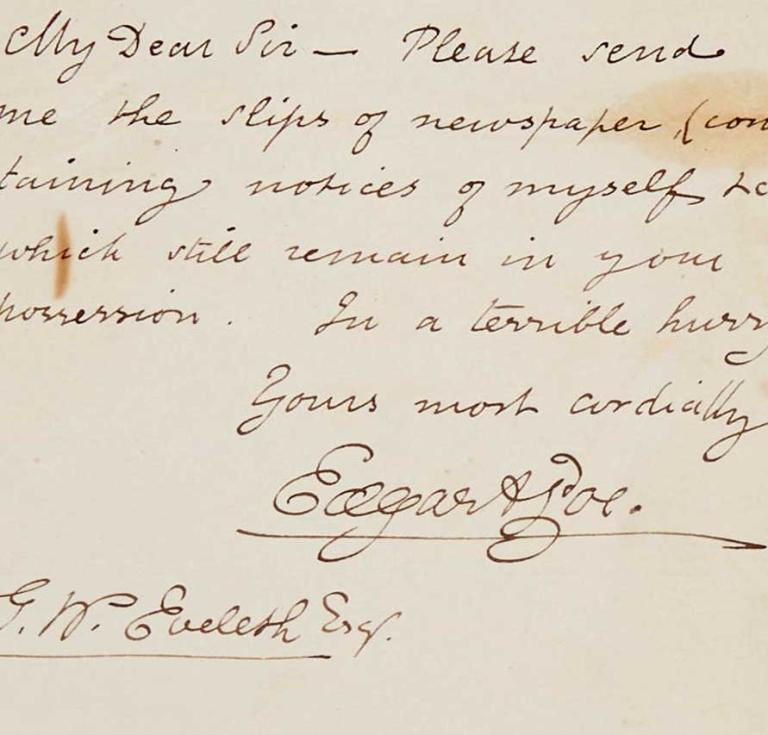 My Dear Sir — Please send
me the slips of newspaper, (con
taining notices of myself &c
which still remain in your
possession. In a terrible hurry
Yours most cordially
Edgar A Poe.
G. W. Eveleth Esqr.